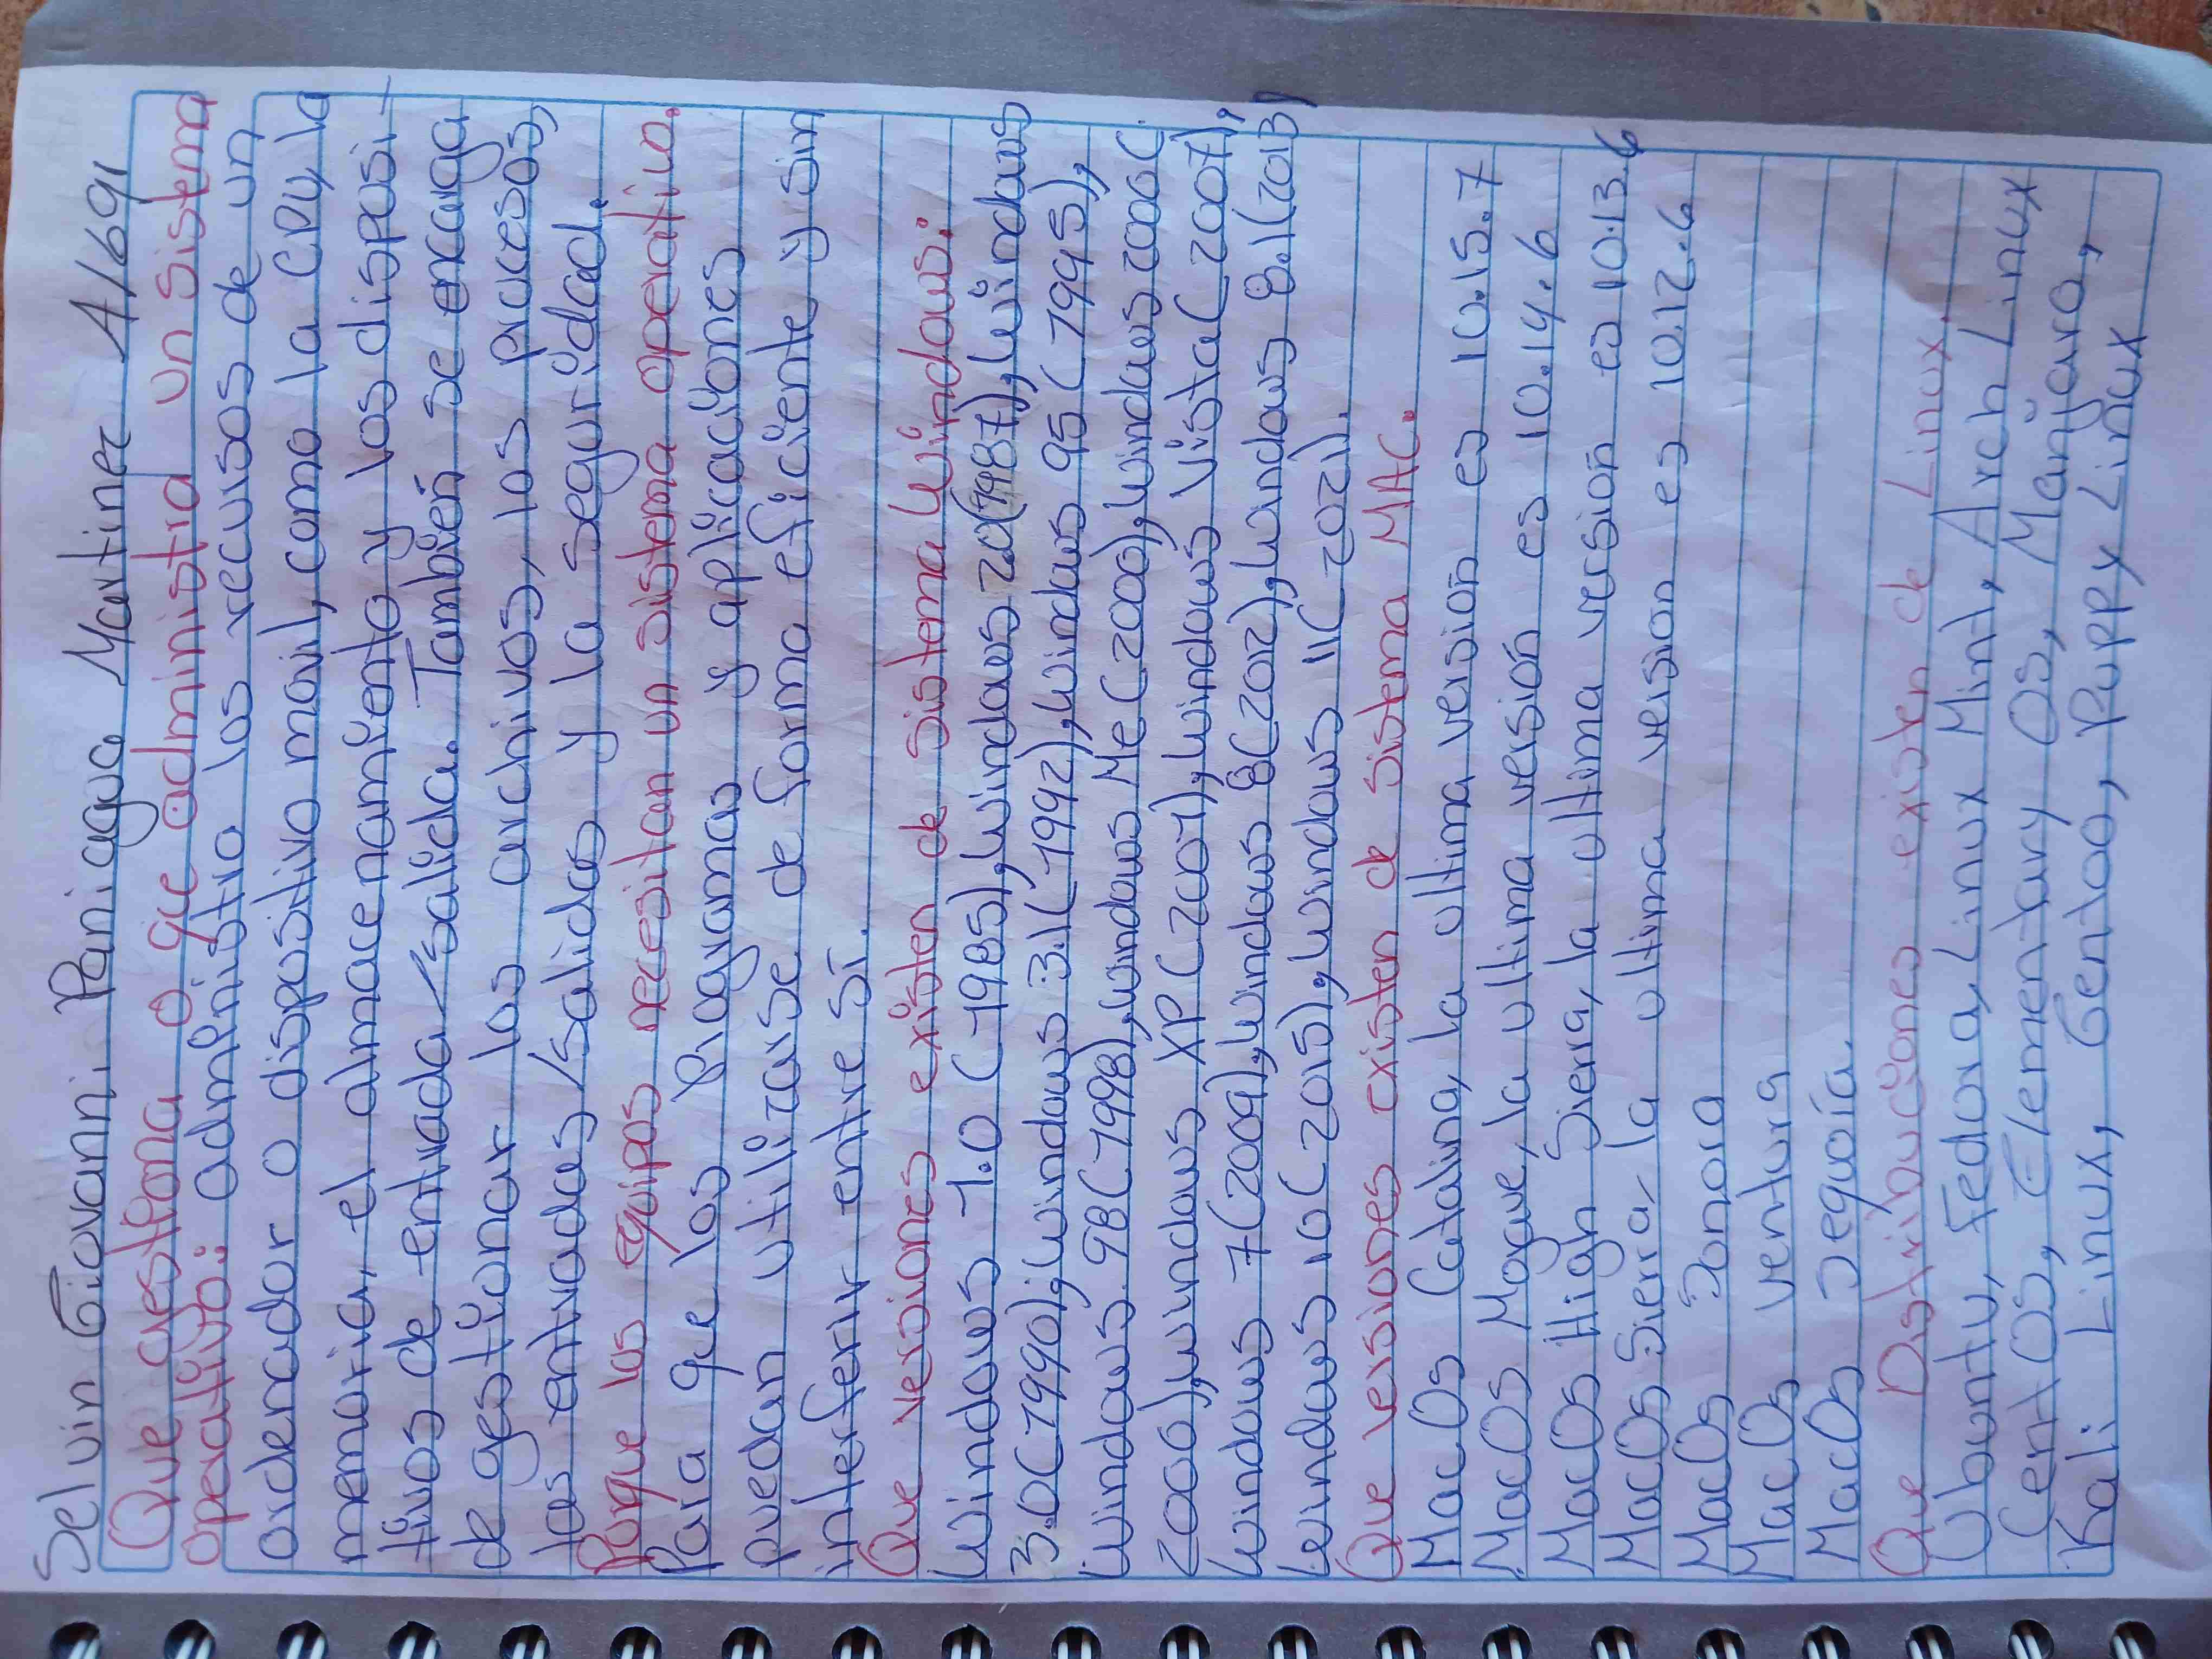 Selvin Giovanni Paniagua Martinez A/691
Que gestiona o que administra un sistema
operativo: administra los recursos de un
ordenador o dispositivo movil, como la CPU, la
memoria, el almacenamiento y los disposi-
tivos de entrada/salida. También se encarga
de gestionar los archivos, los procesos,
las entradas/salidas y la seguridad.
Porque los equipos necesitan un sistema operativo.
Para que los Programas y aplicaciones
puedan utilizarse de forma eficiente y sin
interferir entre sí.
Que versiones existen de sistema Windows:
Windows 1.0 (1985), Windows 2.0(1987), Windows
3.0(1990), Windows 3.1(1992), Windows 95(1995),
Windows 98(1998), Windows Me(2000), Windows 2000(
2000), Windows XP(2001), Windows Vista(2007),
Windows 7(2009), Windows 8(2012), Windows 8.1(2013)
Windows 10(2015), Windows 11(2021).
Que versiones existen de sistema MAC.
MacOs Catalina, la ultima version es 10.15.7
MacOs Mogave, la ultima versión es 10.14.6
MacOs High Sierra, la ultima version es 10.13.6
MacOs Sierra, la ultima version es 10.12.6
MacOs Sonora
MacOs ventura
MacOs sequoía.
Que Distribuciones existen de Linux.
Ubuntu, Fedora, Linux Mint, Arch Linux
CentOs, Elementary Os, Manjaro,
Kali Linux, Gentoo, Puppy Linux